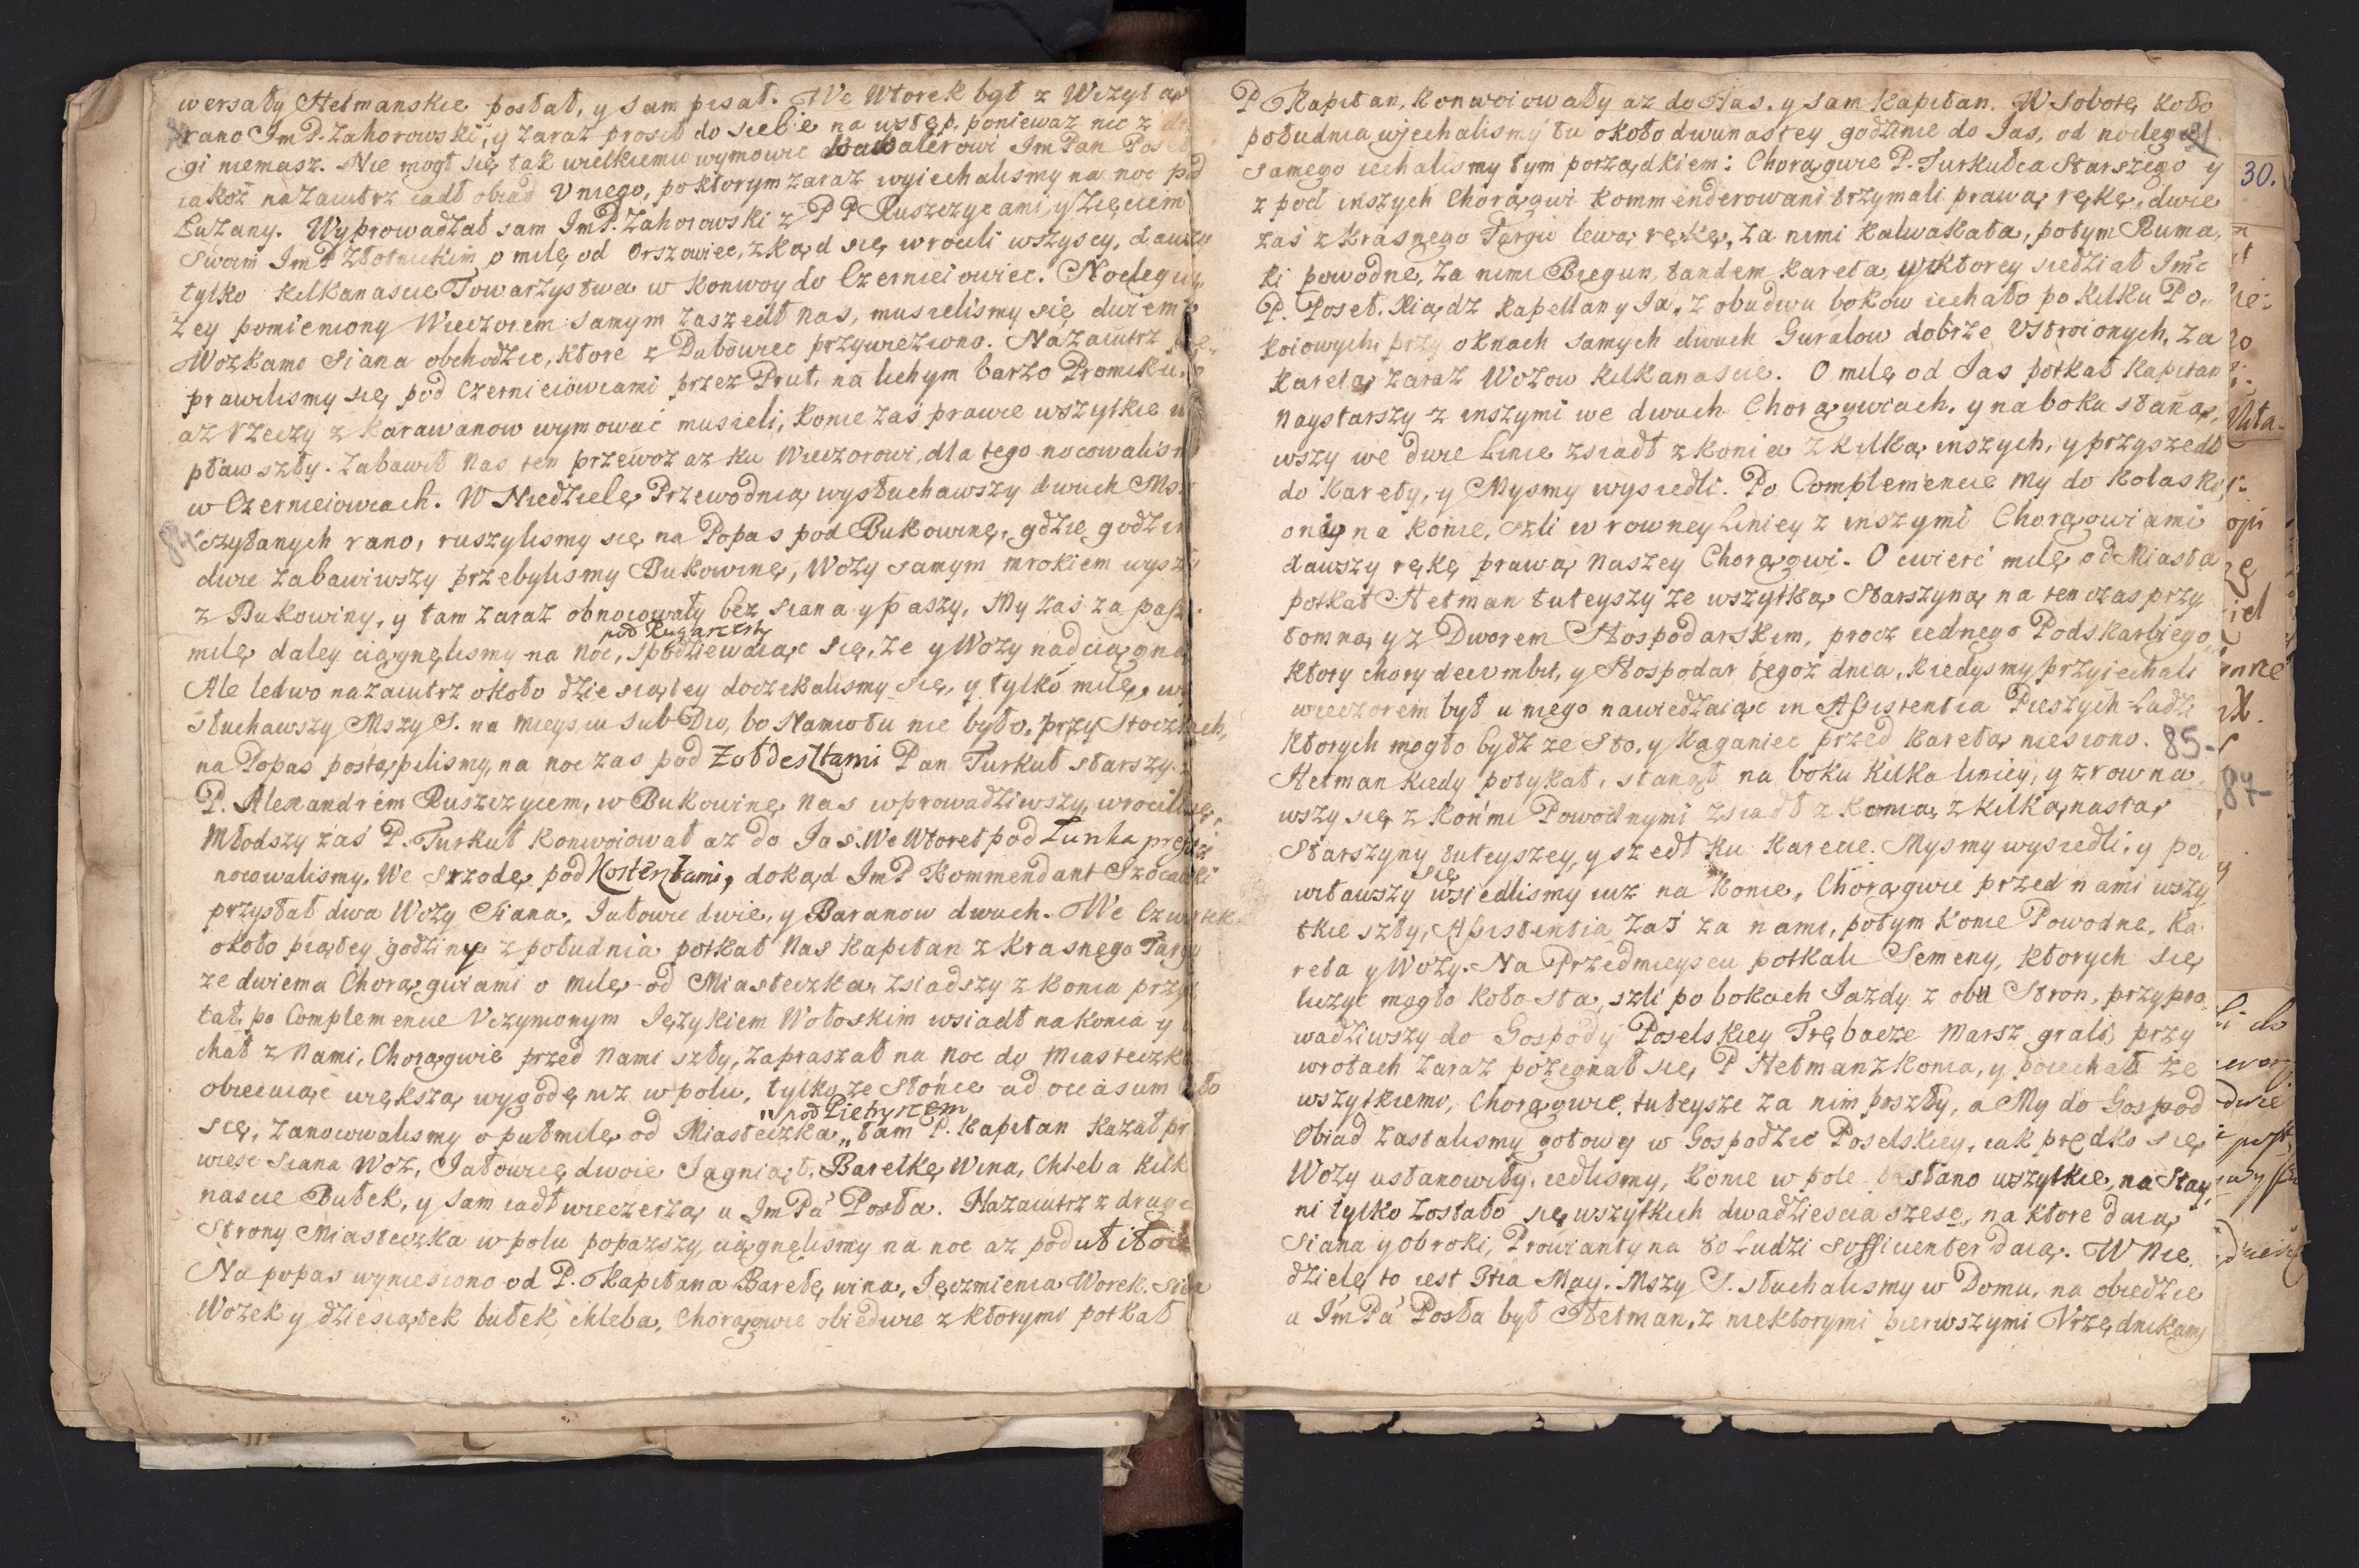 wersały Hetmanskie posłał, y sam pisał. We Wtorek był z Wizytą
rano Im P. Zahorowski, y zaraz prosił do siebie na ustęp. poniewaz nic z
gi niemasz. Nie mogł się tak wielkiemu wymowic Kawalerowi Im Pan Poseł
iakoż nazaiutrz iadł obiad U niego, po ktorym zaraz wyiechalismy na noc pod
Łużany. Wyprowadzał sam Im P. Zahorowski z P P Ruszczycami, y Zięciem
Swoim Im P Złotnickim o milę od Orszowiec, zkąd się wrocili wszyscy, dawszy
tylko kilkanascie Towarzystwa w konwoy do Czerniejowiec. Nocleg
zey pomieniony Wieczorem samym zaszedł nas, musielismy się dwiema
Wozkamo Siana obchodzic, ktore z Dubowiec przywieziono. Nazaiutrz prze
prawilismy się pod Czerniejowcami przez Prut, na lichym barzo Promiku,
az rzeczy z karawanow wymować musieli, konie zaś prawie wszytkie w
pław szły. Zabawił nas ten przewoz az ku Wieczorowi, dla tego nocowalism
w Czerniejowcach. W Niedzielę Przewodnią wysłuchawszy dwuch Mszy
czytanych rano, ruszylismy się na Popas pod Bukowinę, gdzie godzin
dwie zabawiwszy przebylismy Bukowinę, Wozy samym mrokiem wyszły
z Bukowiny, y tam zaraz obnocowały bez siana y paszy, My zaś za
pod Rugaresty
milę daley ciągnęlismy na noc, spodziewaiąc się, że y Wozy nadciągną
Ale ledwo nazaiutrz około dziesiątey doczekalismy się, y tylko milę, wy
słuchawszy Mszy S. na mieyscu sub Dio, bo Namiotu nie było, przy Stoczkach,
na Popas postąpilismy, na noc zas pod Zołdesztami Pan Turkuł starszy z
P. Alexandrem Ruszczycem, w Bukowinę nas wprowadziwszy wrocili się,
Młodszy zaś P. Turkuł konwoiował az do Jas. We Wtorek pod Lunka
nocowalismy. We Srzodę pod Kostesztami, dokąd Im P Kommendant
przysłał dwa Wozy Siana, Jałowic dwie, y Baranow dwuch. We Czwartek
około piątey godziny z południa potkał Nas Kapitan z Krasnego Targu
ze dwiema Chorągwiami o milę od Miasteczka, zsiadszy z konia przy
tał, po Complemencie Uczynionym Językiem Wołoskim wsiadł na konia y
chał z Nami, Chorągwie przed Nami szły, zapraszał na noc do Miasteczka
obiecuiąc większą wygodę niz w polu, tylko ze Słońce ad occasum
„pod Pietryszem
się, zanocowalismy o pułmilę od Miasteczka „ tam P. Kapitan kazał pr
wiesc Siana Woz, Jałowicę, dwoie Jagniąt, Barełkę Wina, Chleba kilk
nascie Bułek, y sam iadł wieczerzą u Im Pa Posła. Nazaiutrz z drugi
Strony Miasteczka w polu popazszy ciągnęlismy na noc az pod
Na popas wyniesiono od P. Kapitana Barełę wina, Jęczmienia Worek, Siana
Wozek y dziesiątek bułek chleba, Chorągwie obiedwie z ktorymi potkał
P Kapitan, konwoiowały az do Jas, y sam Kapitan. W Sobotę koło
południa wjechalismy tu około dwunastey godzinie do Jas, od noclegu
31
samego iechalismy tym porządkiem: Chorągwie P. Turkuła Starszego y
30.
z pod inszych Chorągwi kommenderowani trzymali prawą rękę, dwie
zaś z krasnego Targu lewą rękę, za nimi kalwakata, potym Ruma,
ki powodne, za nimi Biegun, tandem kareta, w ktorey siedział Imc
P. Poseł. Xiądz Kapellan y Ja, z obudwu bokow iechało po kilku Po,
koiowych, przy oknach samych dwuch Guralow dobrze Ustroionych, za
karetą zaraz Wozow kilkanascie. O milę od Jas potkał Kapitan
Naystarszy z inszymi we dwuch Chorągwiach, y na boku stana,
wszy we dwie Linie zsiadł z konia z kilką inszych, y przyszedł
do karety, y Mysmy wysiedli. Po Complemencie my do kolaski
oni na konie, szli w rowney Liniey z inszymi Chorągwiami
dawszy rękę prawą naszey Chorągwi. O cwierć milę od Miasta
potkał Hetman tuteyszy ze wszytką Starszyną na ten czas przy
tomną, y z Dworem Hospodarskim, procz iednego Podskarbiego
ktory chory decumbit, y Hospodar tegoz dnia, kiedysmy przyiechali
wieczorem był u niego nawiedzaiąc in Assistentia Pieszych Ludzi
ktorych mogło bydz ze sto, y kaganiec przed karetą niesiono. 85-
Hetman kiedy potykał, stanął na boku kilka liniey, y zrowna
87-
wszy się z końmi Powodnymi zsiadł z konia, z kilkąnastą
Starszyny tuteyszey, y szedł ku karecie. Mysmy wysiedli, y po,
się
witawszy wsiedlismy iuz na konie, Chorągwie przed nami wszy
tkie szły, Assistentia zaś za nami, potym konie Powodne, ka
reta y Wozy. Na Przedmieyscu potkali Semeny, ktorych się
liczyc mogło koło sta, szli po bokach Jazdy z obu Stron, przypro
wadziwszy do Gospody Poselskiey Trębacze Marsz grali, przy
wrotach zaraz pożegnał się P Hetman z konia, y poiechał ze
wszytkiemi, Chorągwie tuteysze za nim poszły, a My do Gospod
Obiad zastalismy gotowy w Gospodzie Poselskiey, iak prędko się
Wozy ustanowiły, iedlismy, konie w pole posłano wszytkie, na Stay,
ni tylko zostało się wszytkich dwadziescia szesc, na ktore daią
Siana y obroki, Prowianty na 80 Ludzi sufficienter daią. W Nie
dzielę to iest 3tia May. Mszy S. słuchalismy w Domu, na obiedzie
u Im Pa Posła był Hetman, z niektorymi pierwszymi Urzędnikami